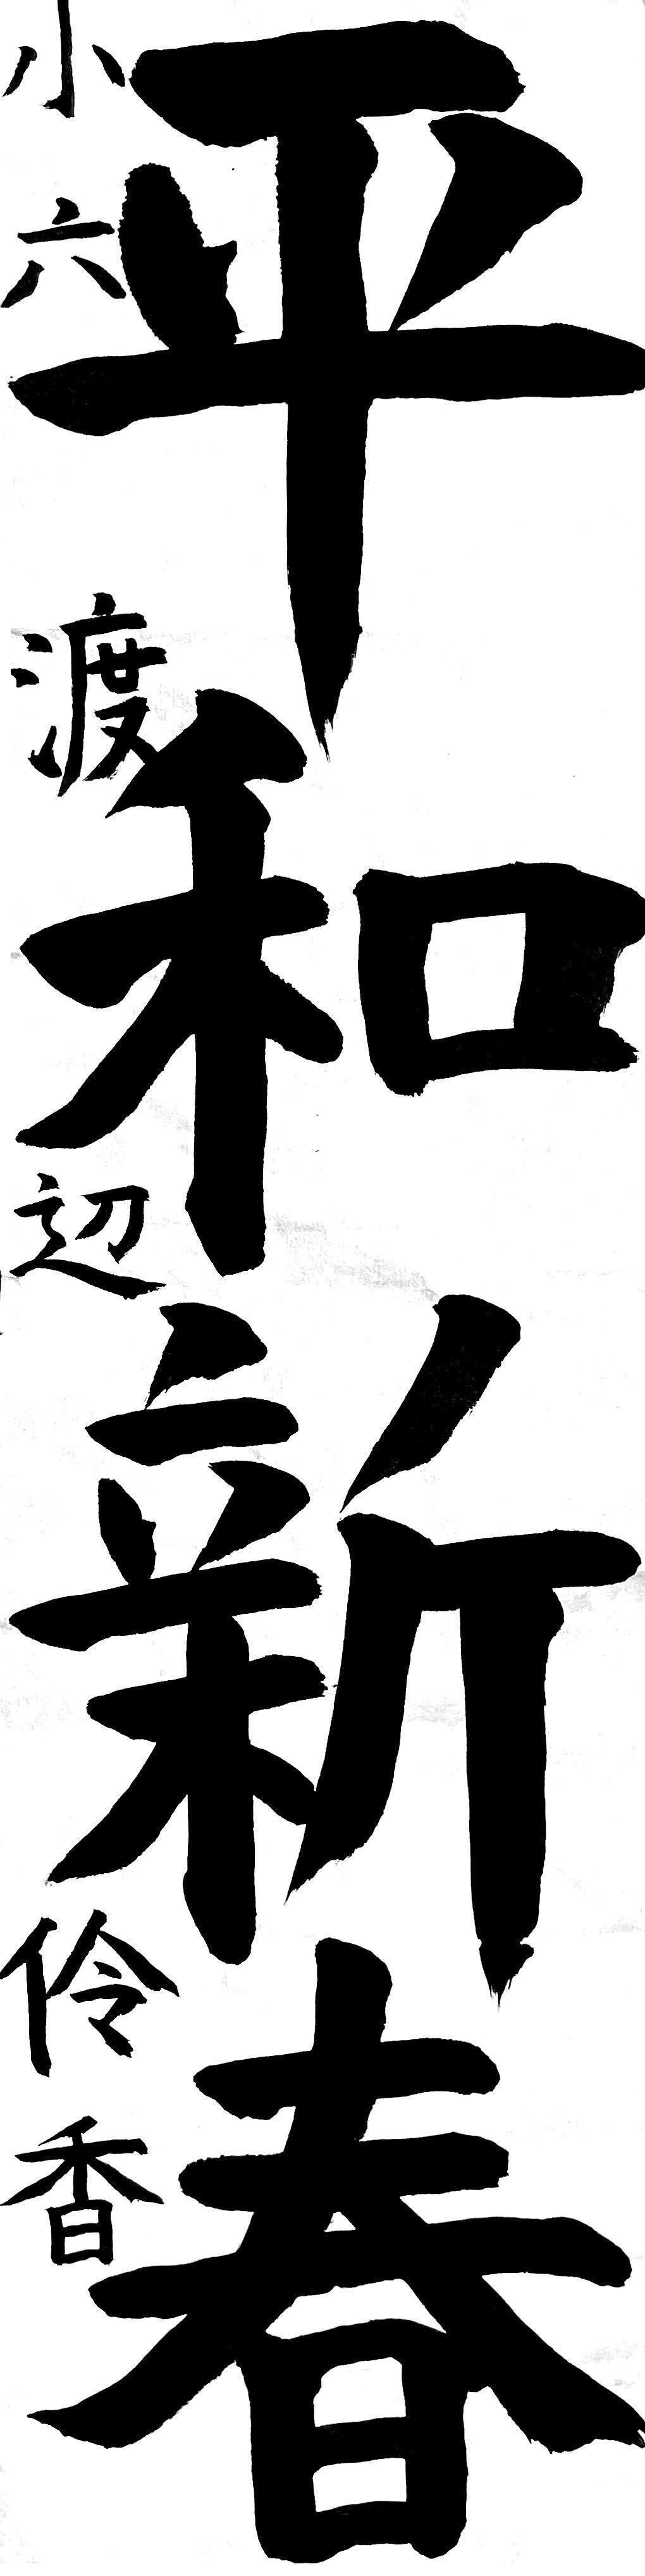 平和新春
小六 渡辺 伶香